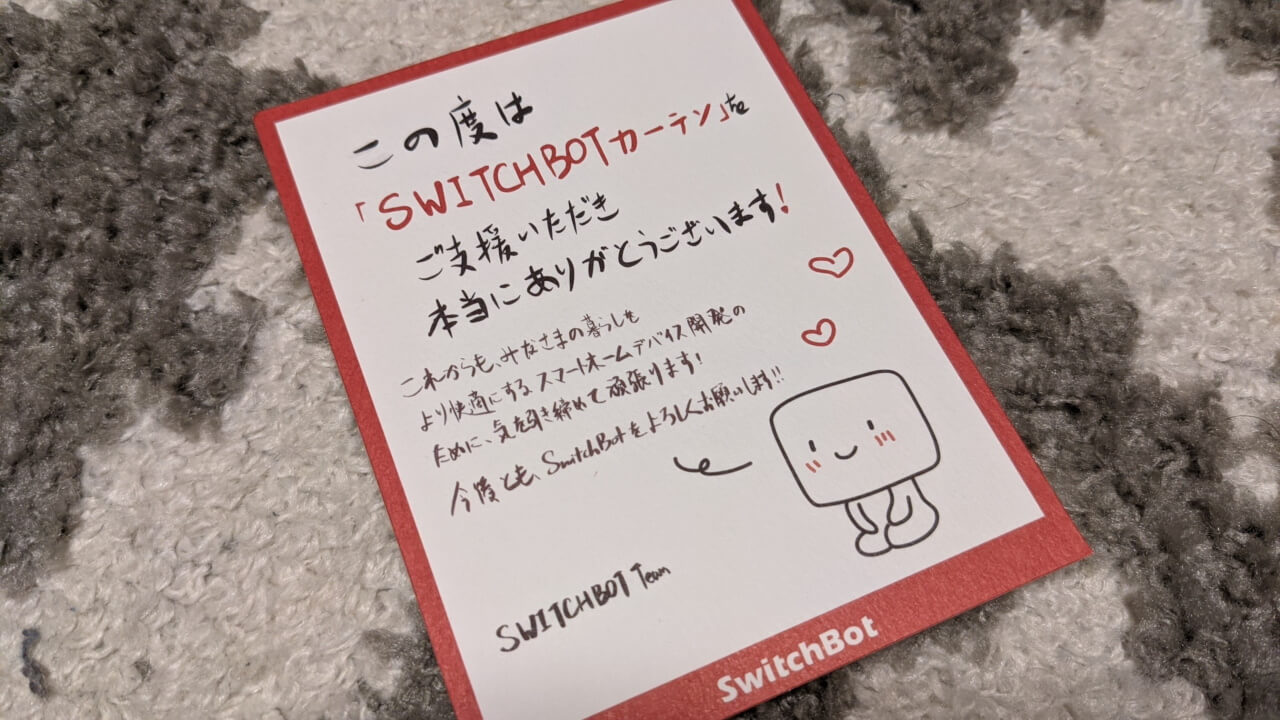 この度は
「SWITCHBOTカーテン」を
ご支援いただき
本当にありがとうございます!
これからも、みなさまの暮らしを
より快適にするスマートホームデバイス開発の
ために、気を引き締めて頑張ります!
今後とも、SwitchBotをよろしくお願いします!!
SWITCHBOT Team
SwitchBot